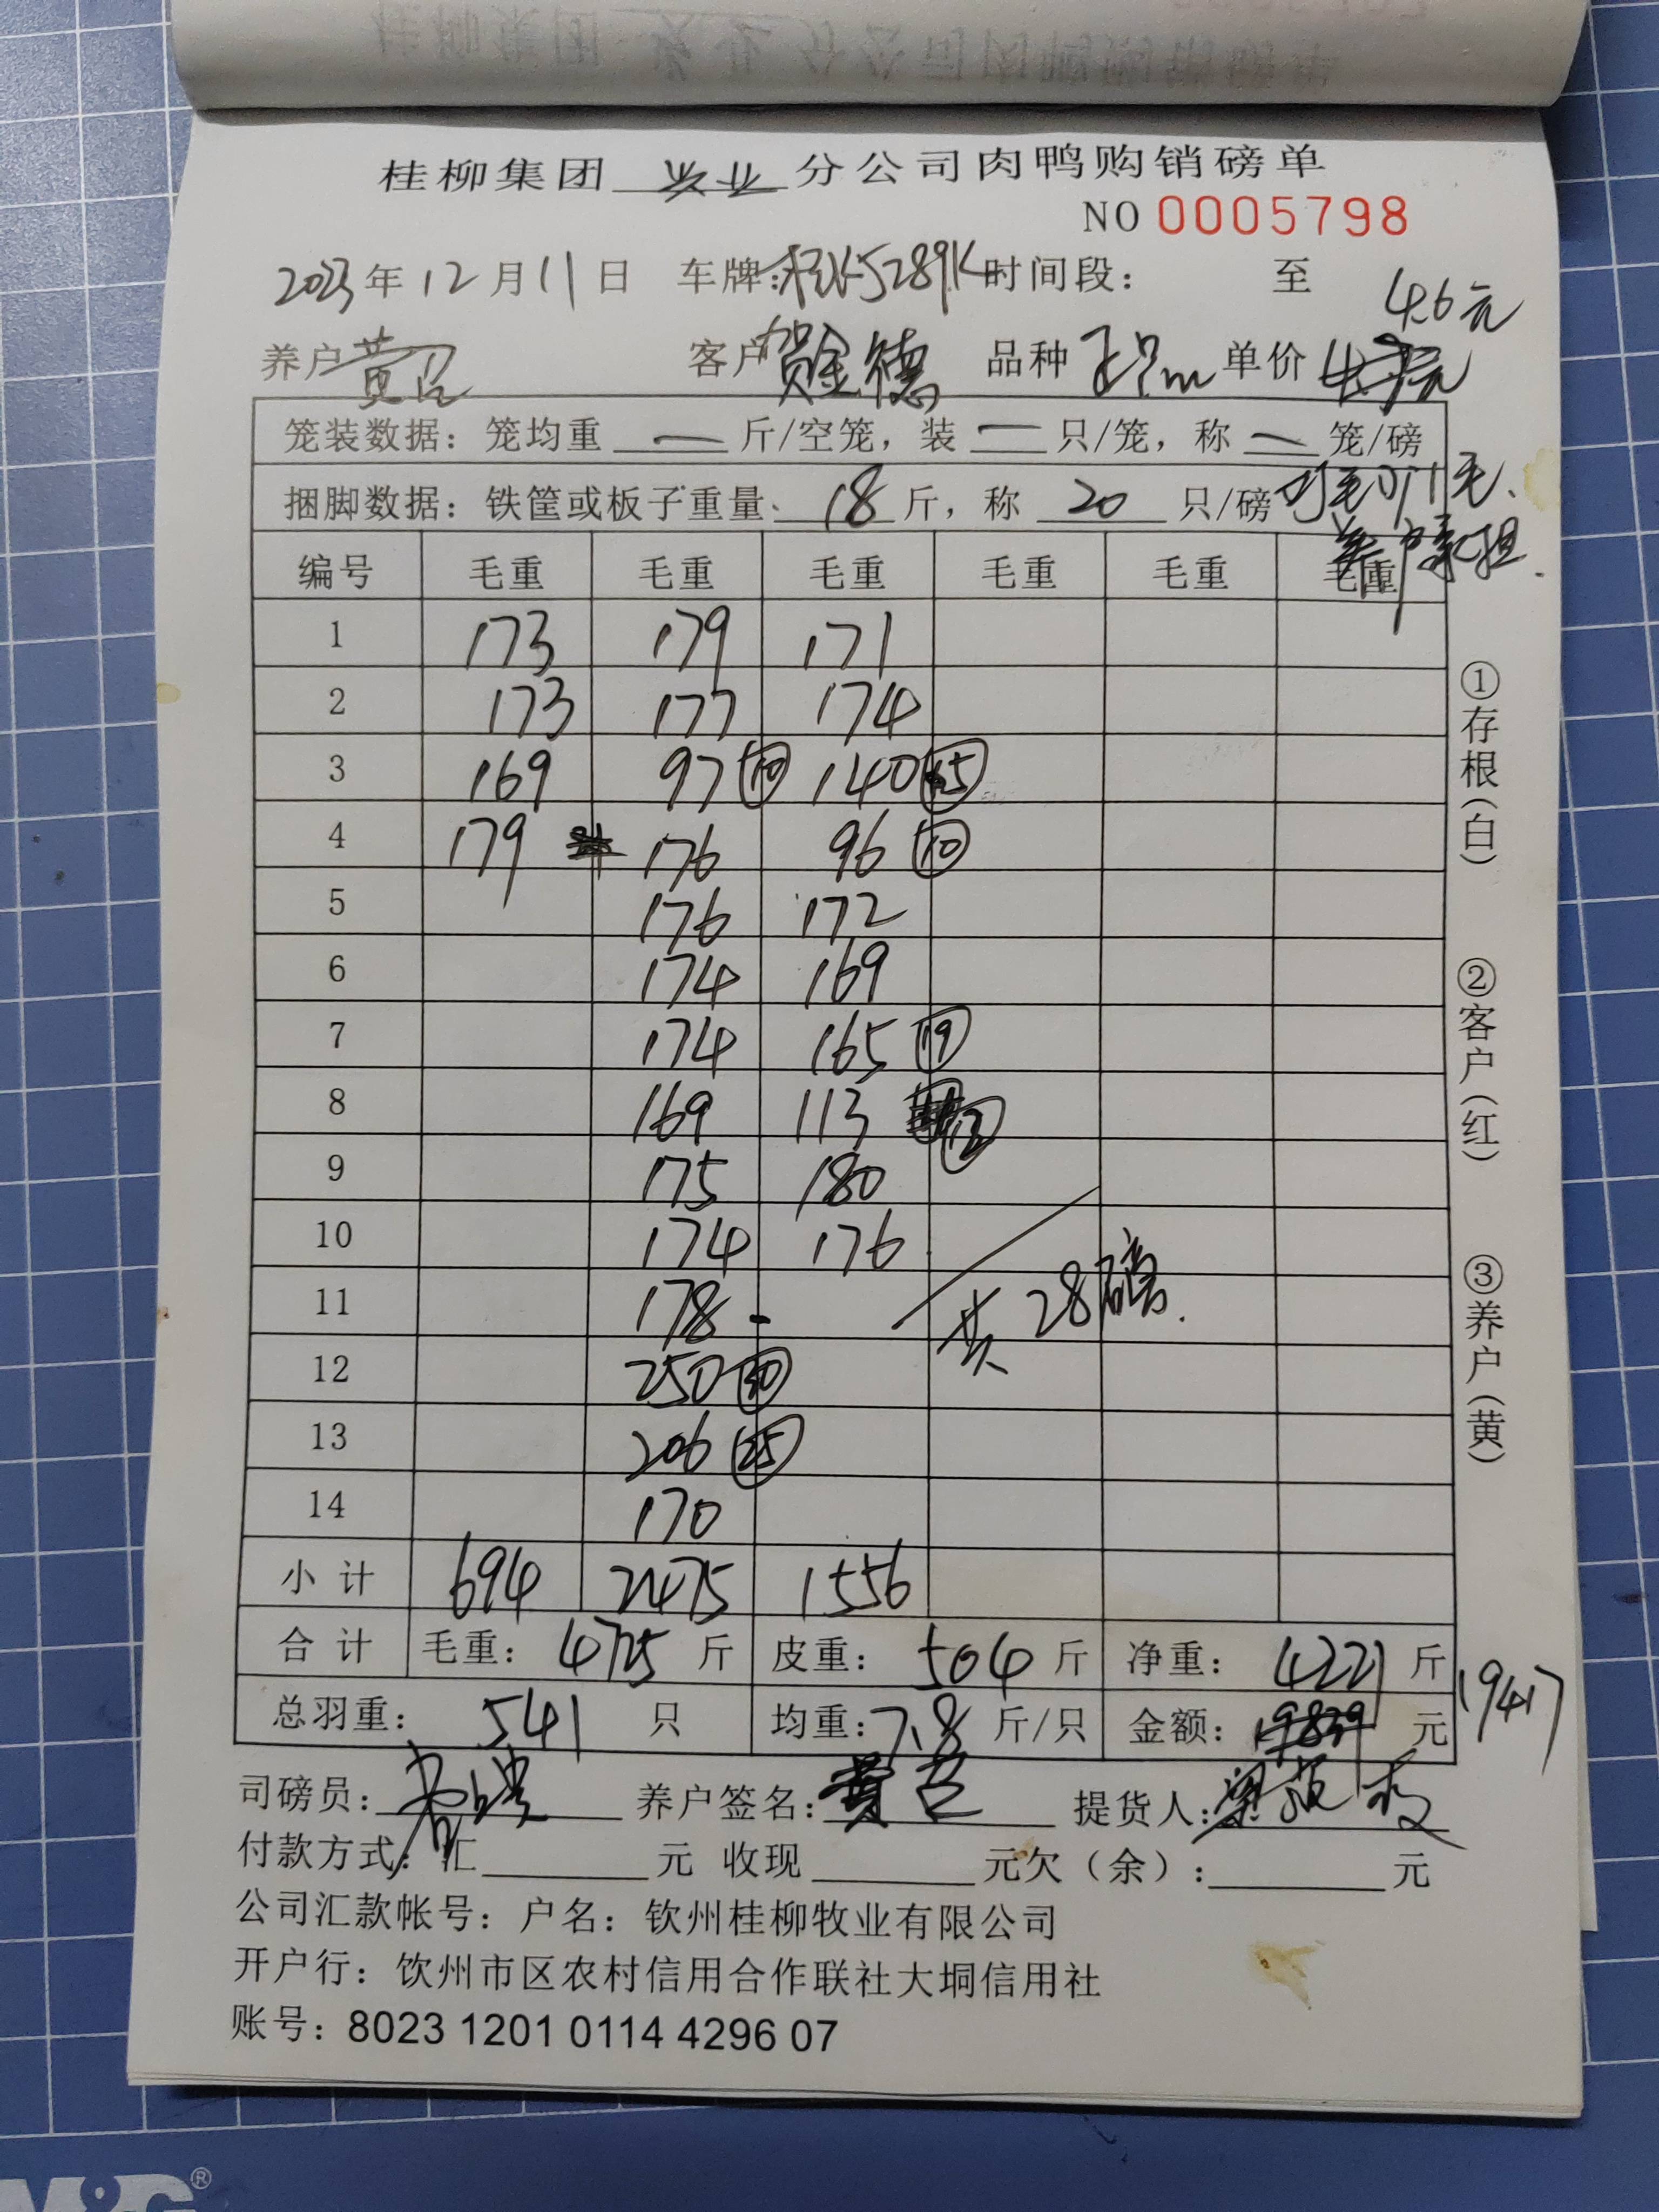 桂柳集团 兴业 分公司肉鸭购销磅单
NO 0005798
2023年12月11日 车牌:桂K5289K 时间段: 至
4.6元
养户 黄召 客户 贺金德 品种 单价
笼装数据: 笼均重 — 斤/空笼, 装 — 只/笼, 称 — 笼/磅
捆脚数据: 铁筐或板子重量 18 斤, 称 20 只/磅
养户承担.
编号 毛重 毛重 毛重 毛重 毛重 毛重
1 173 179 171
2 173 177 174
3 169 97 10 140 15
4 179 176 96 10
5 176 172
6 174 169
7 174 165 19
8 169 113 12
9 175 180
10 174 176
11 178
共28磅.
12 250 30
13 206 25
14 170
小计 694 2475 1556
合计 毛重: 4725 斤 皮重: 504 斤 净重: 4221 斤
总羽重: 541 只 均重: 7.8 斤/只 金额: 19839 元 19417
司磅员: 养户签名: 黄召 提货人:
付款方式: 汇 元 收现 元欠(余): 元
公司汇款帐号: 户名: 钦州桂柳牧业有限公司
开户行: 饮州市区农村信用合作联社大垌信用社
账号: 8023 1201 0114 4296 07
①存根(白)
②客户(红)
③养户(黄)
M&G®